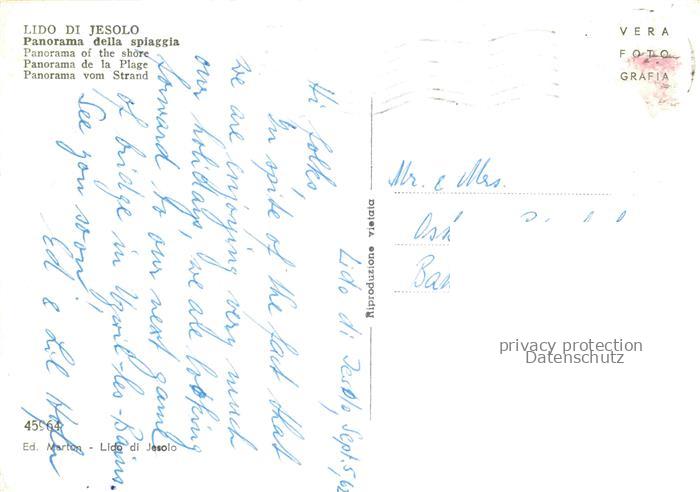 LIDO DI JESOLO
Panorama della spiaggia
Panorama of the shore
Panorama de la Plage
Panorama vom Strand
VERA
FOTO
GRAFIA
Lido di Jesolo, Sept. 5, 62
Hi folks,
In spite of the fact that
we are enjoying very much
our holidays, we are looking
forward to our next game
of bridge in Yverdon-les-Bains.
See you soon,
Ed & Lil
Riproduzione vietata
Mr. & Mrs.
privacy protection
Datenschutz
45964
Ed. Marton - Lido di Jesolo